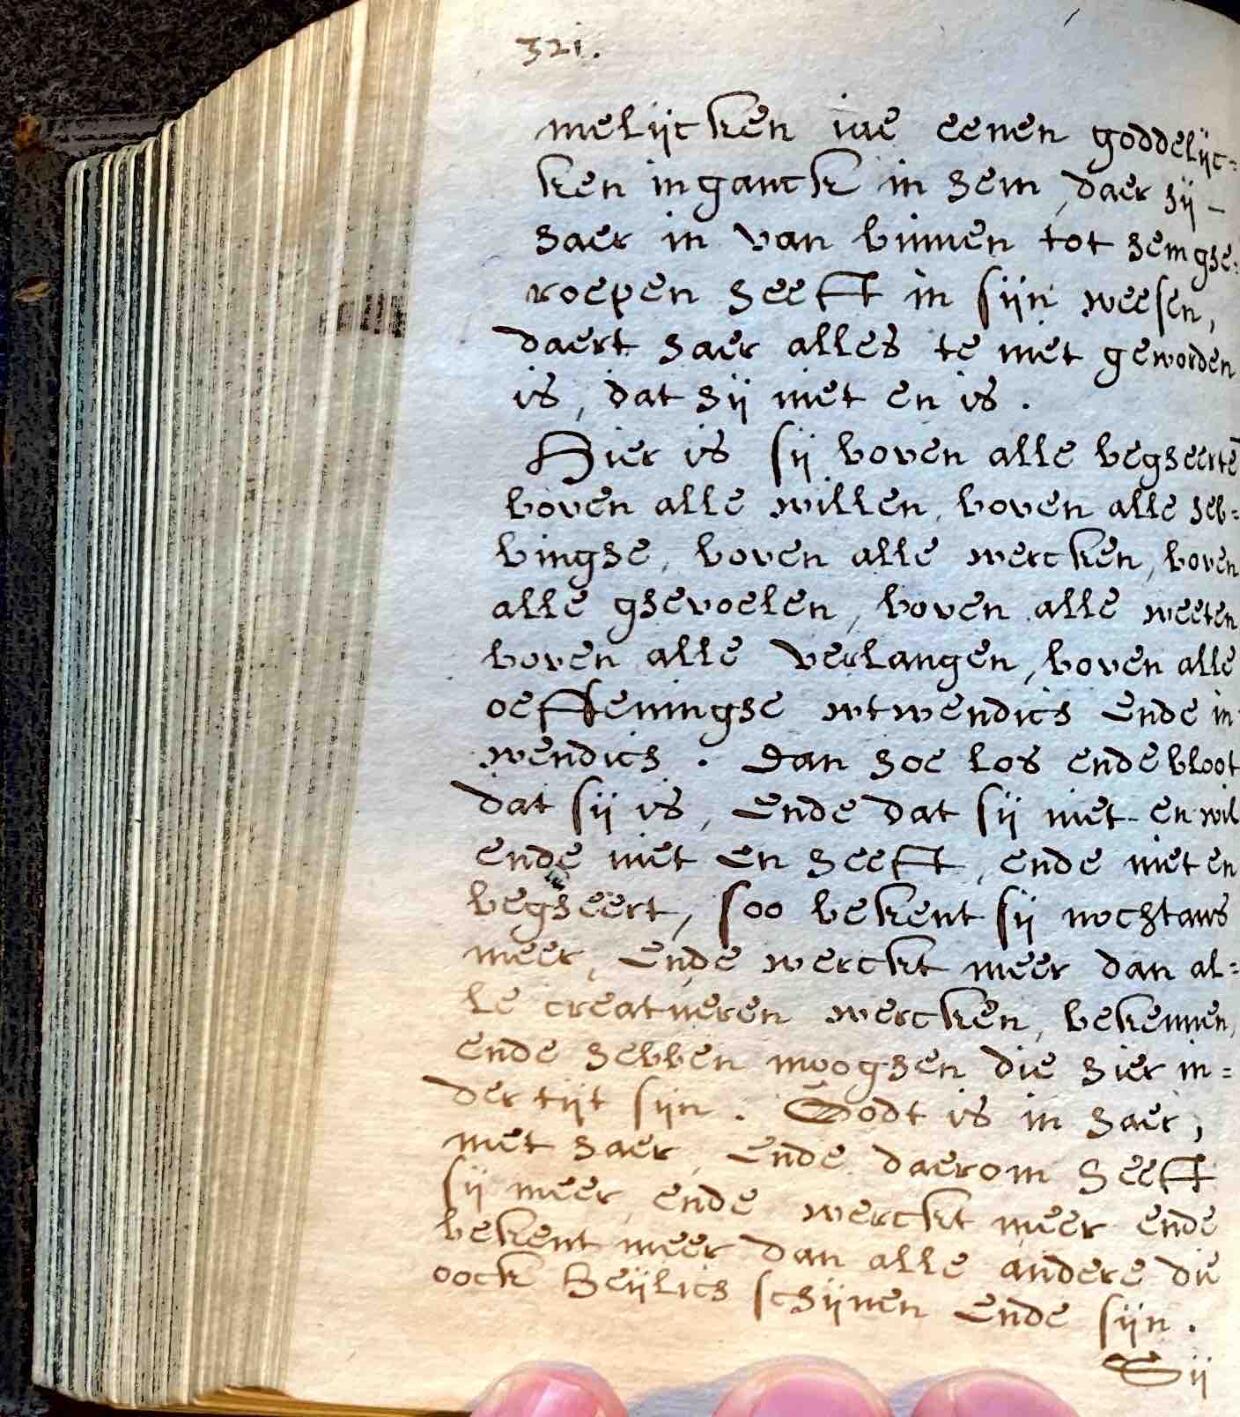 321.
melijcken jae eenen goddelijc=
ken inganck in hem, daer hij -
haer in van binnen tot hem ghe=
roepen heeft in sijn weesen,
daert haer alles te niet geworden
is, dat hij niet en is.
Hier is sij boven alle begheerte
boven alle willen, boven alle heb=
binghe, boven alle wercken, boven
alle ghevoelen, boven alle weeten
boven alle verlangen, boven alle
oeffeninghe wtwendich ende in
wendich. Dan hoe los ende bloot
dat sij is, ende dat sij niet en wil
ende niet en heeft, ende niet en
begheert, soo bekent sij nochtans
meer, ende werckt meer dan al=
le creatueren wercken, bekennen,
ende hebben mooghen die hier in=
der tijt sijn. Godt is in haer,
met haer, ende daerom heeft
sij meer, ende werckt meer ende
bekent meer dan alle andere die
oock heijlich schijnen ende sijn.
Sij